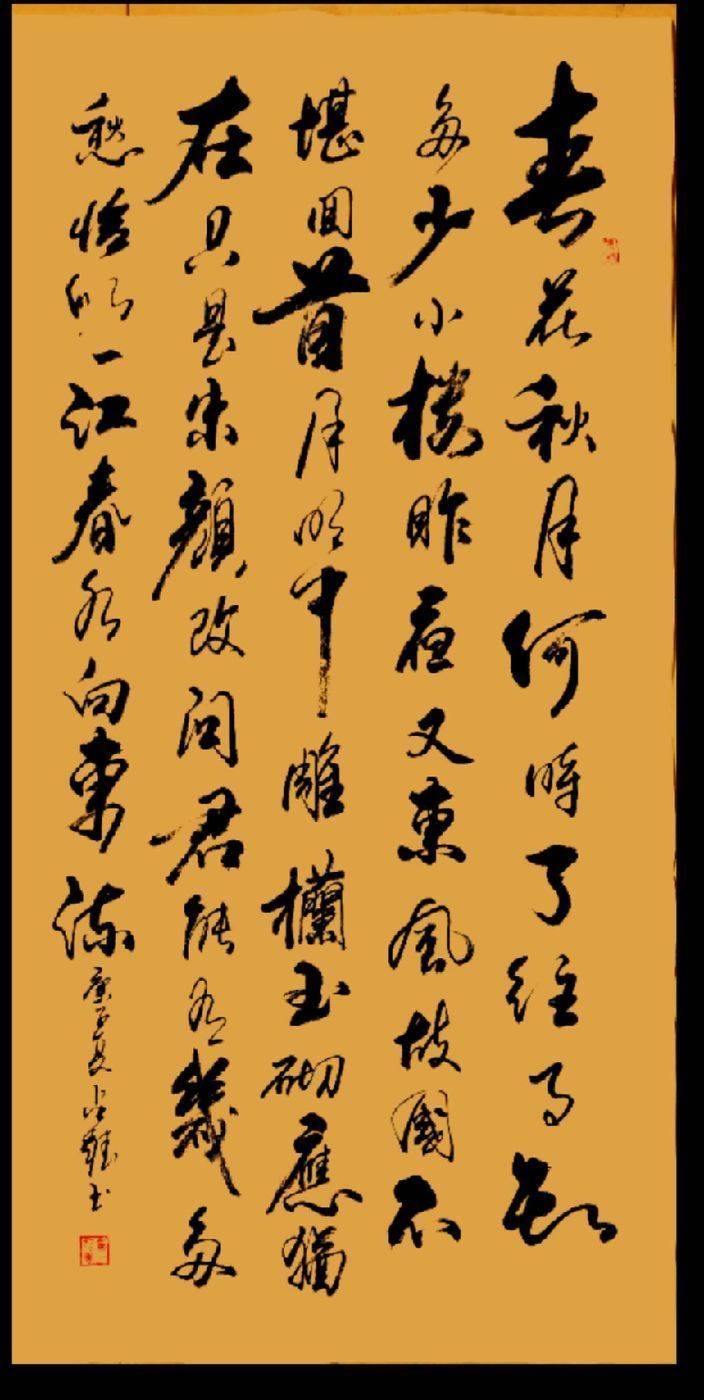 春花秋月何時了往事知
多少小樓昨夜又東風故國不
堪回首月明中雕欗玉砌應猶
在只是朱顏改問君能有幾多
愁恰似一江春水向東流
庚子夏書